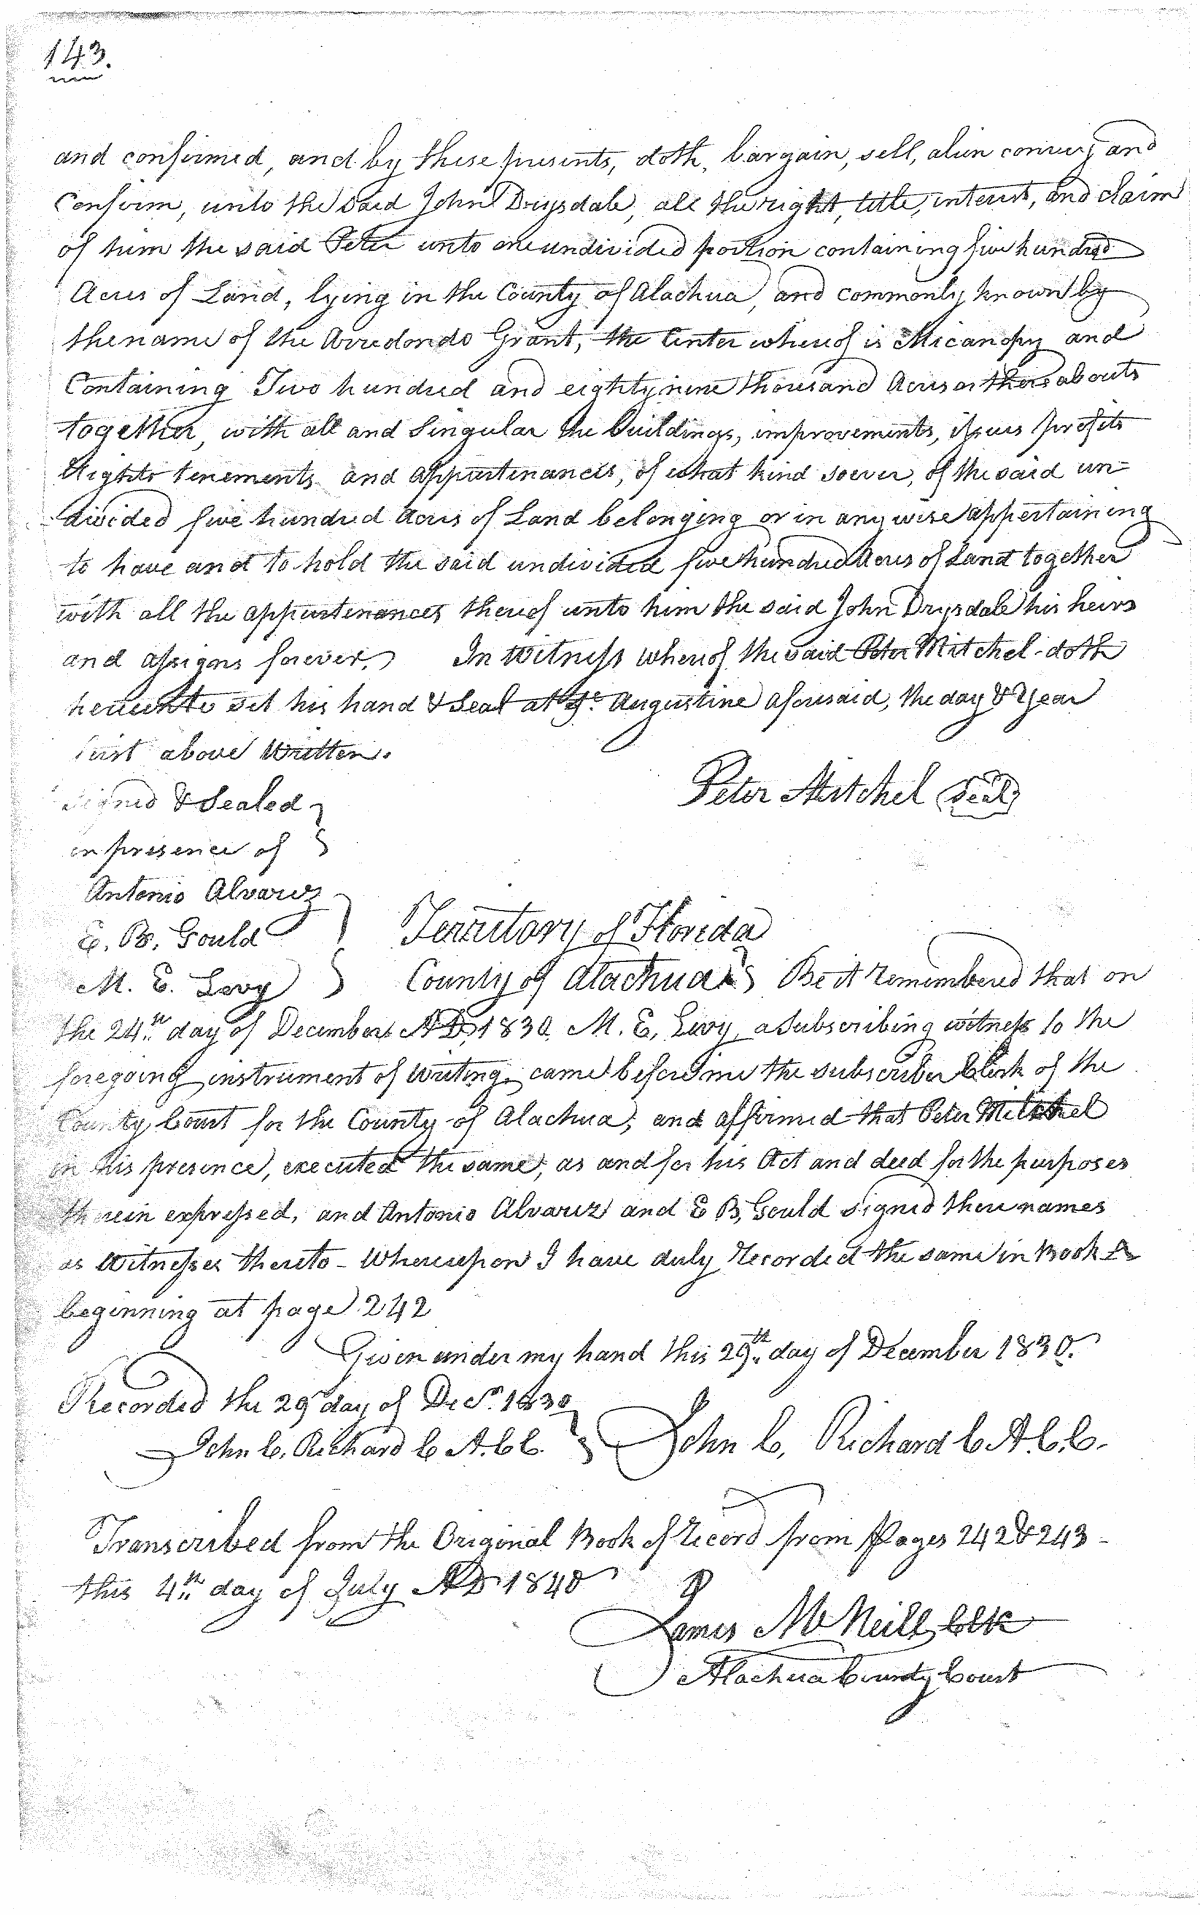 143.
and confirmed, and by these presents, doth, bargain, sell, alien convey and
Confirm, unto the said John Drysdale, all the right, title, interest, and claim
of him the said Peter unto one undivided portion containing five hundred
Acres of Land, lying in the County of Alachua, and commonly known by
the name of the Arredondo Grant, the Center whereof is Micanopy and
Containing Two hundred and eighty nine thousand Acres or thereabouts
together, with all and Singular the buildings, improvements, issues profits
Rights tenements and appurtenances, of what kind soever, of the said un=
divided five hundred Acres of Land belonging or in any wise appertaining
to have and to hold the said undivided five hundred Acres of Land together
with all the appurtenances thereof unto him the said John Drysdale his heirs
and assigns forever. In Witness whereof the said Peter Mitchel - doth
hereunto set his hand & Seal at St. Augustine aforesaid, the day & Year
first above Written.
Signed & Sealed
in presence of
Peter Mitchel Seal
Antonio Alvarez
E. B. Gould
M. E. Levy
Territory of Florida
County of Alachua Be it remembered that on
the 24th day of December AD, 1830 M. E. Levy, a Subscribing witness to the
foregoing instrument of Writing, came before me the subscriber Clerk of the
County Court for the County of Alachua, and affirmed that Peter Mitchel
in his presence, executed the same, as and for his Act and deed for the purposes
therein expressed, and Antonio Alvarez and E B, Gould signed there names
as Witnesses thereto - Whereupon I have duly Recorded the same in Book A
beginning at page 242
Given under my hand this 29th day of December 1830.
Recorded the 29th day of Decr. 1830
John C. Richard C A. C C.
John C, Richard C A. C. C.
Transcribed from the Original Book of Record from Pages 242 & 243 -
this 4th day of July AD 1840
James McNeill, Clk
Alachua County Court